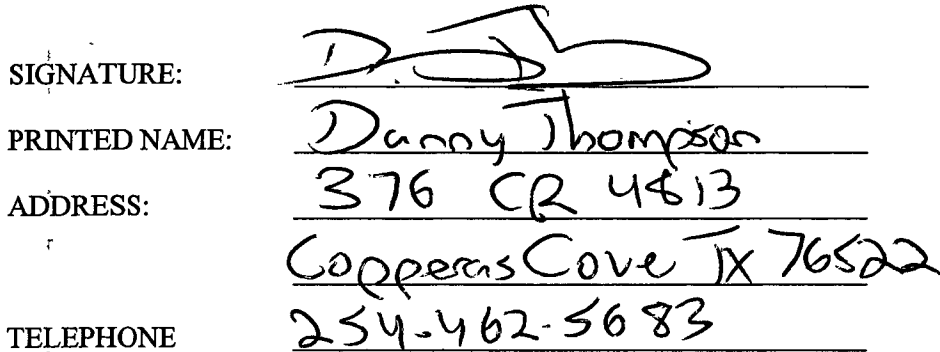 SIGNATURE:
PRINTED NAME: Danny Thompson
ADDRESS: 376 CR 4813
Copperas Cove TX 76522
TELEPHONE 254-462-5683